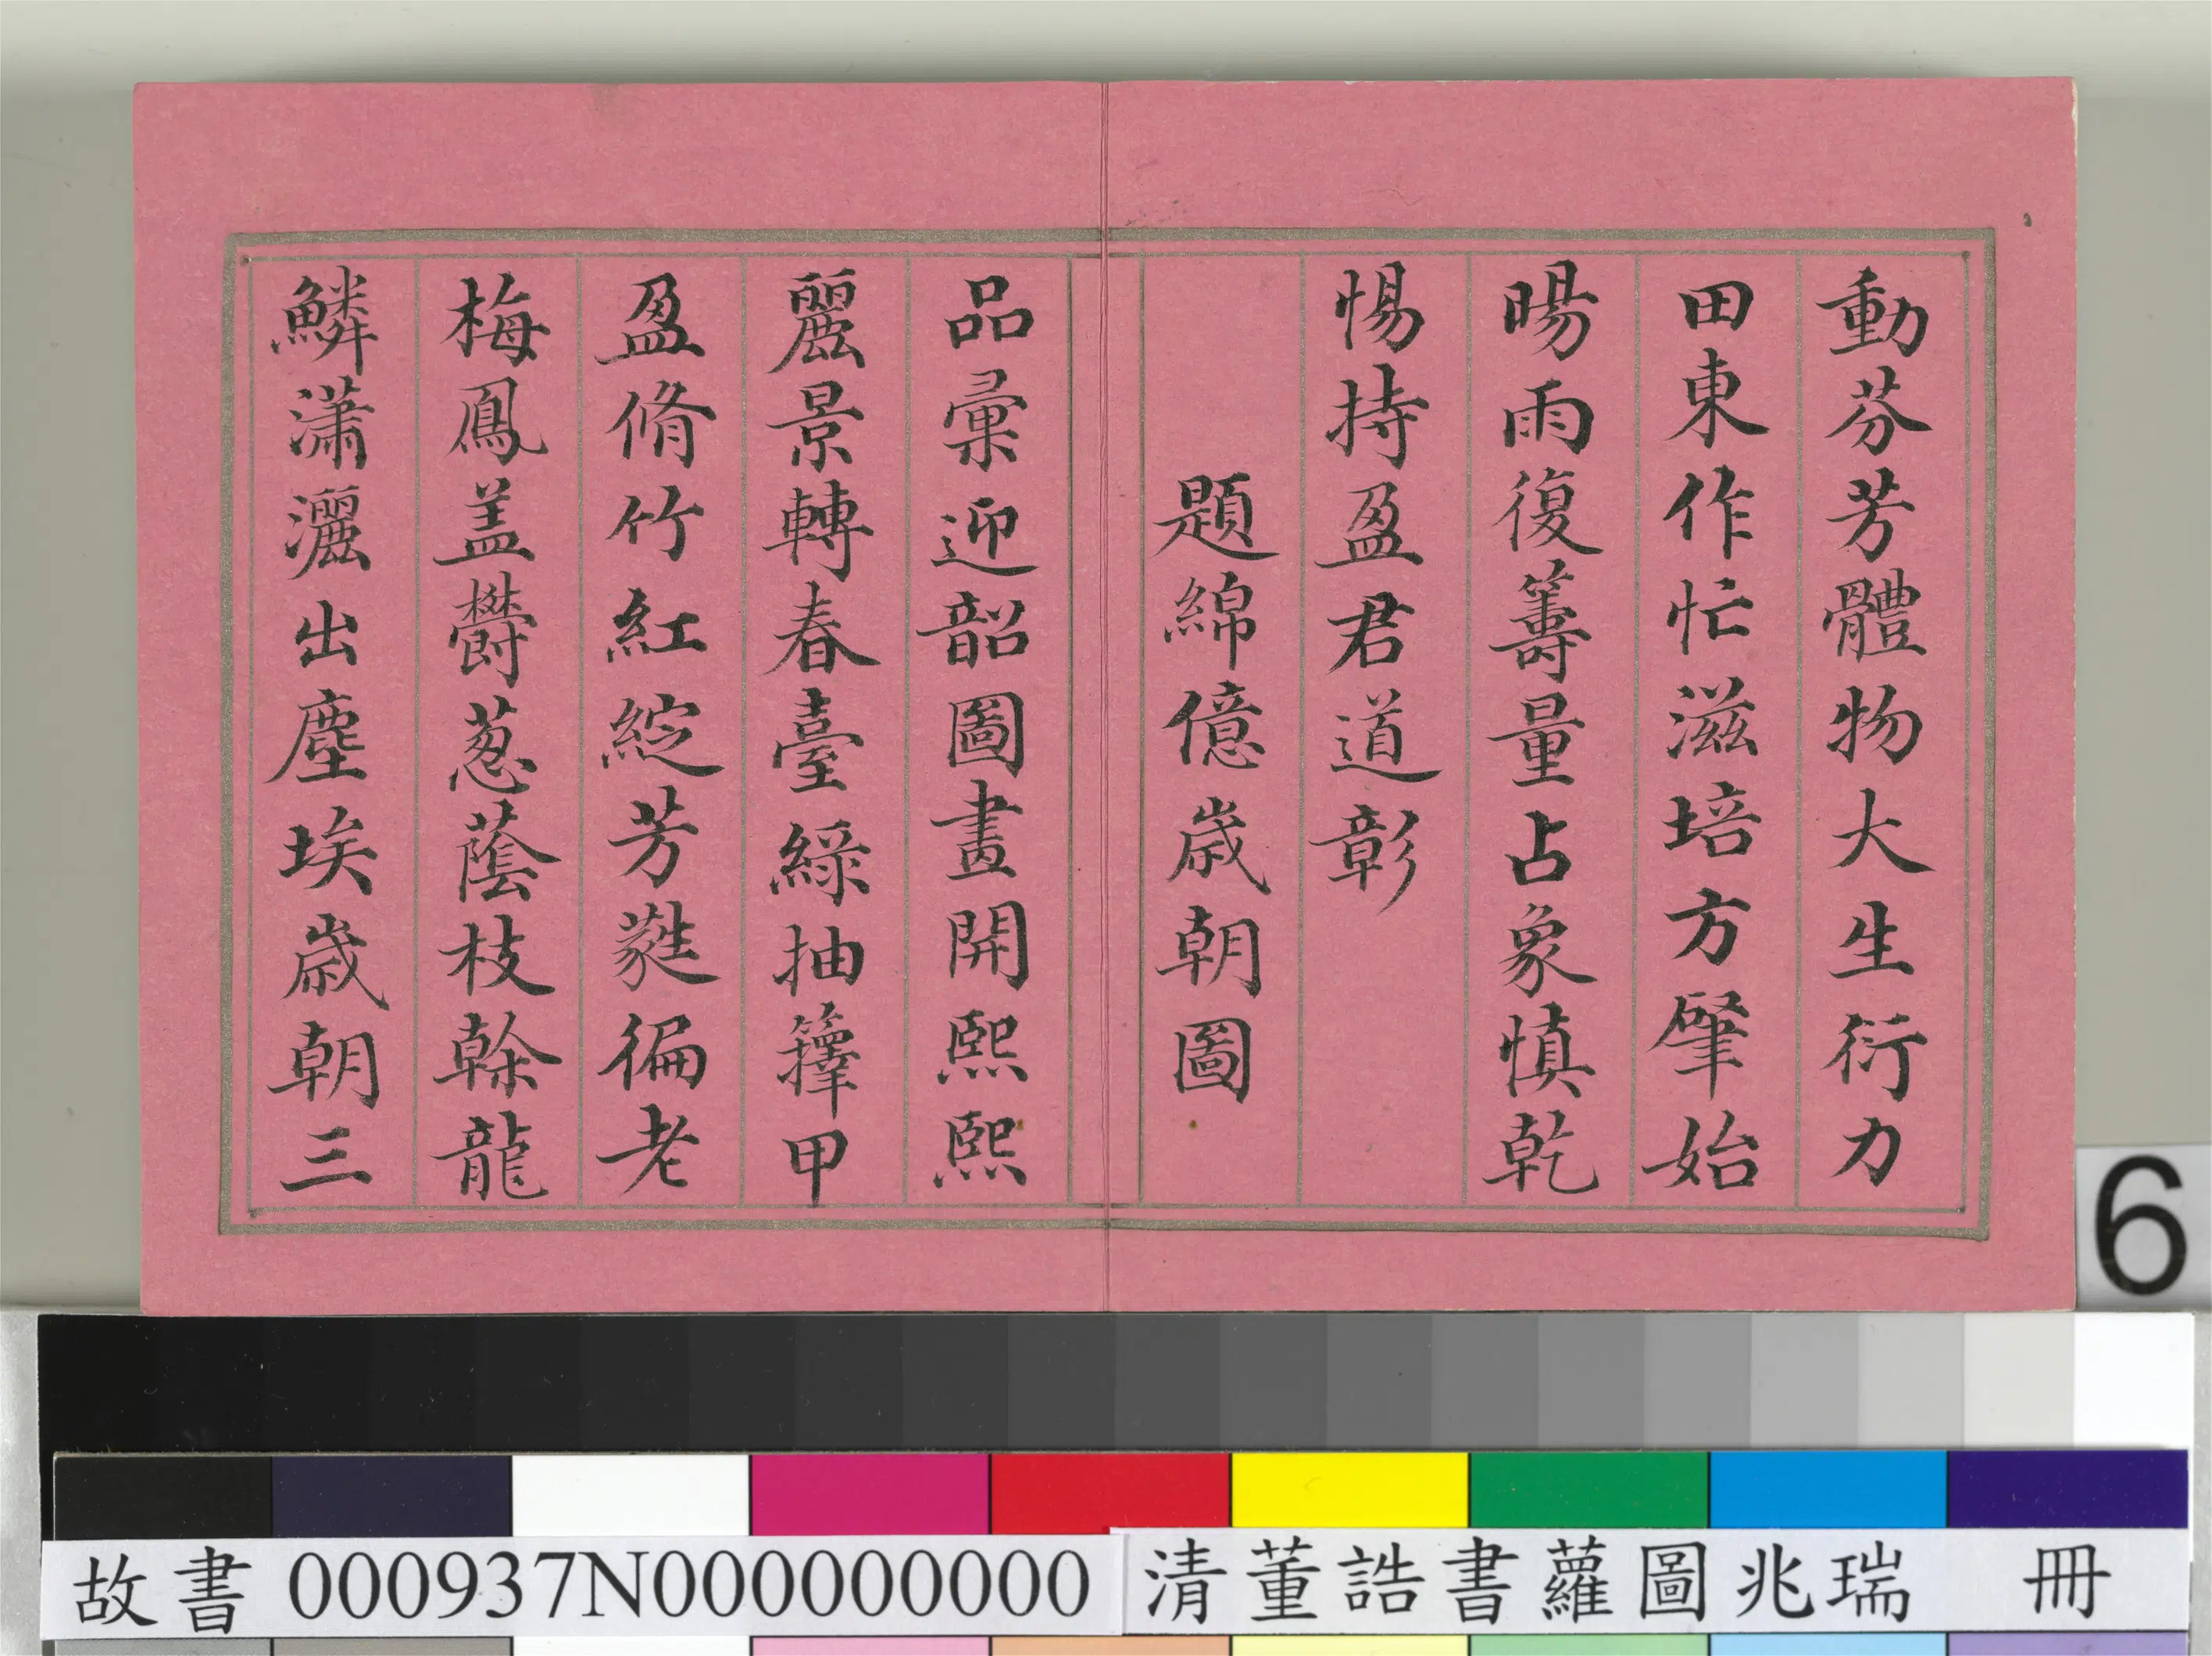 動芬芳體物大生衍力
田東作忙滋培方肈始
暘雨復籌量占象慎乾
惕持盈君道彰
題綿億歲朝圖
品彙迎韶圖畫開熙熙
麗景轉春臺綠抽籜甲
盈脩竹紅綻芳蕤徧老
梅鳳盖欝葱蔭枝榦龍
鱗瀟灑出塵埃歲朝三
6
故書 000937N000000000 清董誥書蘿圖兆瑞 冊